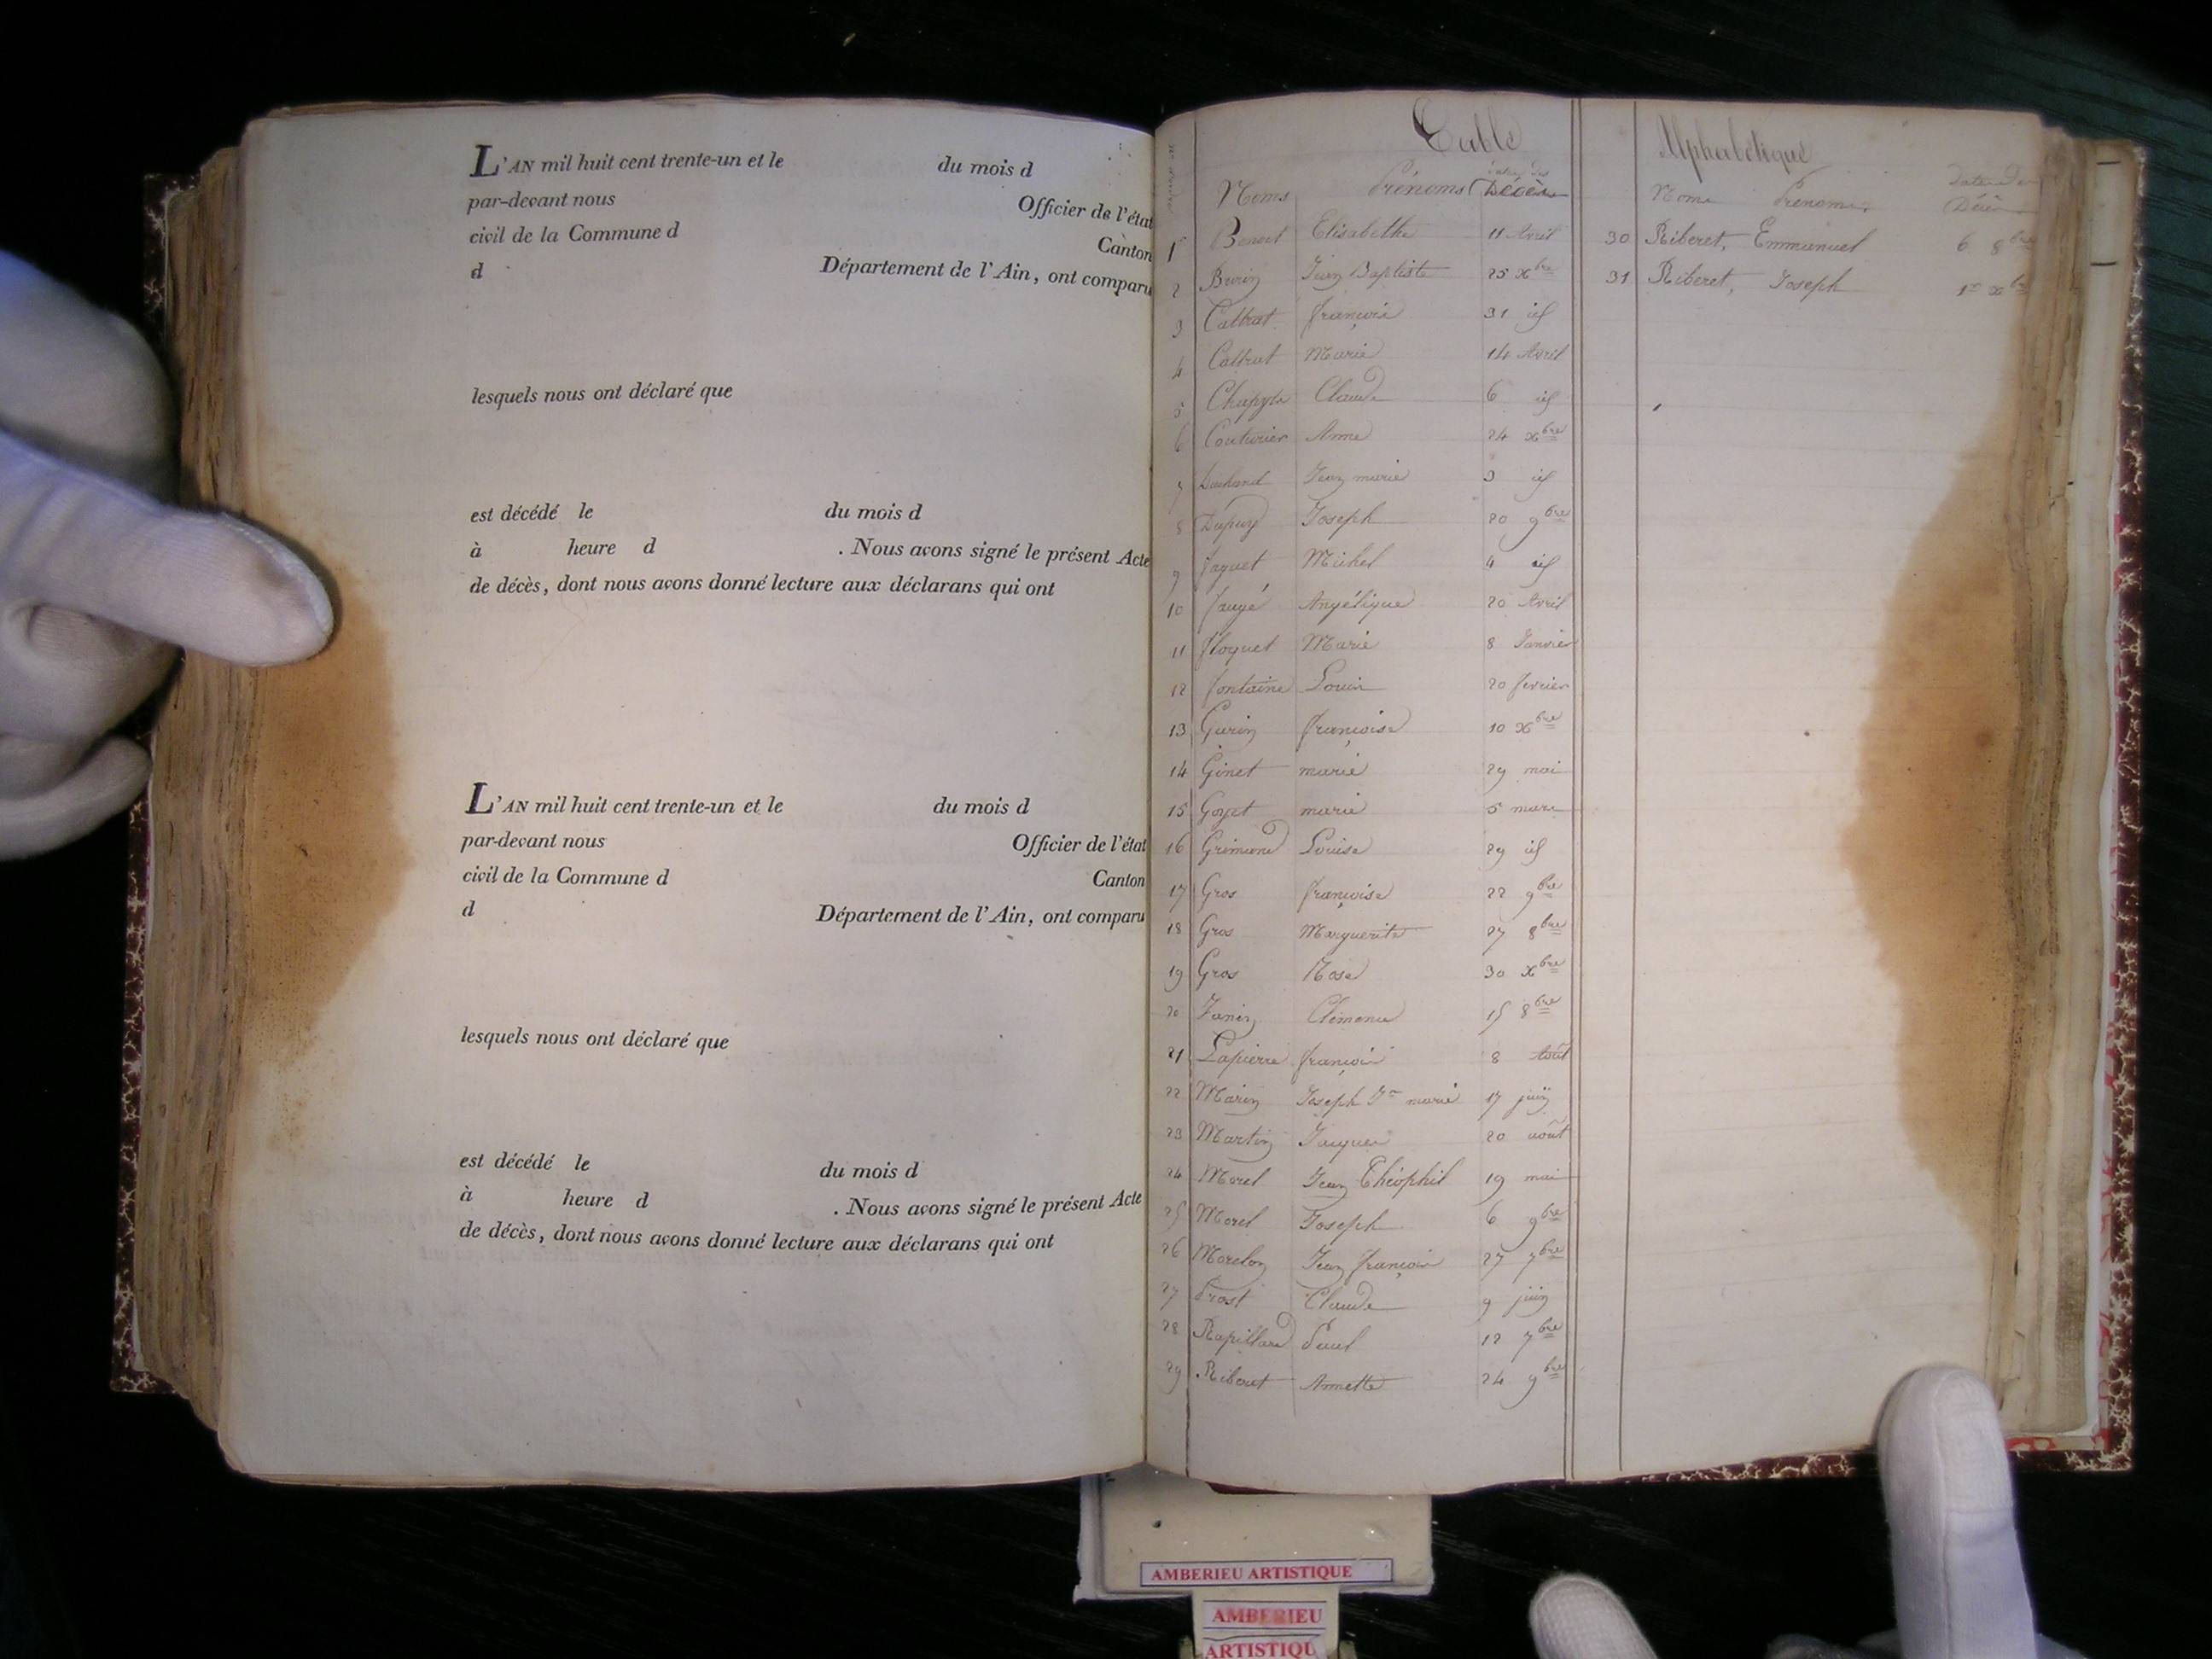 L'AN mil huit cent trente-un et le du mois d
par-devant nous Officier de l'état
civil de la Commune d Canton
d Département de l'Ain, ont comparu
lesquels nous ont déclaré que
est décédé le du mois d
à heure d . Nous avons signé le présent Acte
de décès, dont nous avons donné lecture aux déclarans qui ont
L'AN mil huit cent trente-un et le du mois d
par-devant nous Officier de l'état
civil de la Commune d Canton
d Département de l'Ain, ont comparu
lesquels nous ont déclaré que
est décédé le du mois d
à heure d . Nous avons signé le présent Acte
de décès, dont nous avons donné lecture aux déclarans qui ont
Table
Noms Prénoms Décès
1 Benoit Elisabethe 11 Avril
2 Jean Baptiste 25 xbre
3 Cattrat françois 31 id
4 Cattrat Marie 14 Avril
5 Claude 6 id
6 Couturier Anne 24 xbre
7 Jean marie 9 id
8 Dupuy Joseph 20 9bre
9 faquet Michel 4 id
10 faugé Angélique 20 Avril
11 floquet Marie 8 Janvier
12 fontaine Louis 20 fevrier
13 Gurin françoise 10 xbre
14 Ginet marie 29 mai
15 Goyet marie 5 mars
16 Grimand Louise 29 id
17 Gros françoise 22 9bre
18 Gros Marguerite 27 8bre
19 Gros Rose 30 xbre
20 Janin Clémence 15 8bre
21 Lapierre françois 8 Août
22 Marin Joseph Jn marie 17 juin
23 Martin Jacques 20 août
24 Morel Jean Théophil 19 mai
25 Morel Joseph 6 9bre
26 Morelon Jean françois 27 7bre
27 Prost Claude 9 juin
28 Rapillard Paul 12 7bre
29 Riberet Annette 24 9bre
Alphabétique
Noms Prénoms Date des Décès
30 Riberet, Emmanuel 6 8bre
31 Riberet, Joseph 1er xbre
AMBERIEU ARTISTIQUE
AMBERIEU
ARTISTIQU